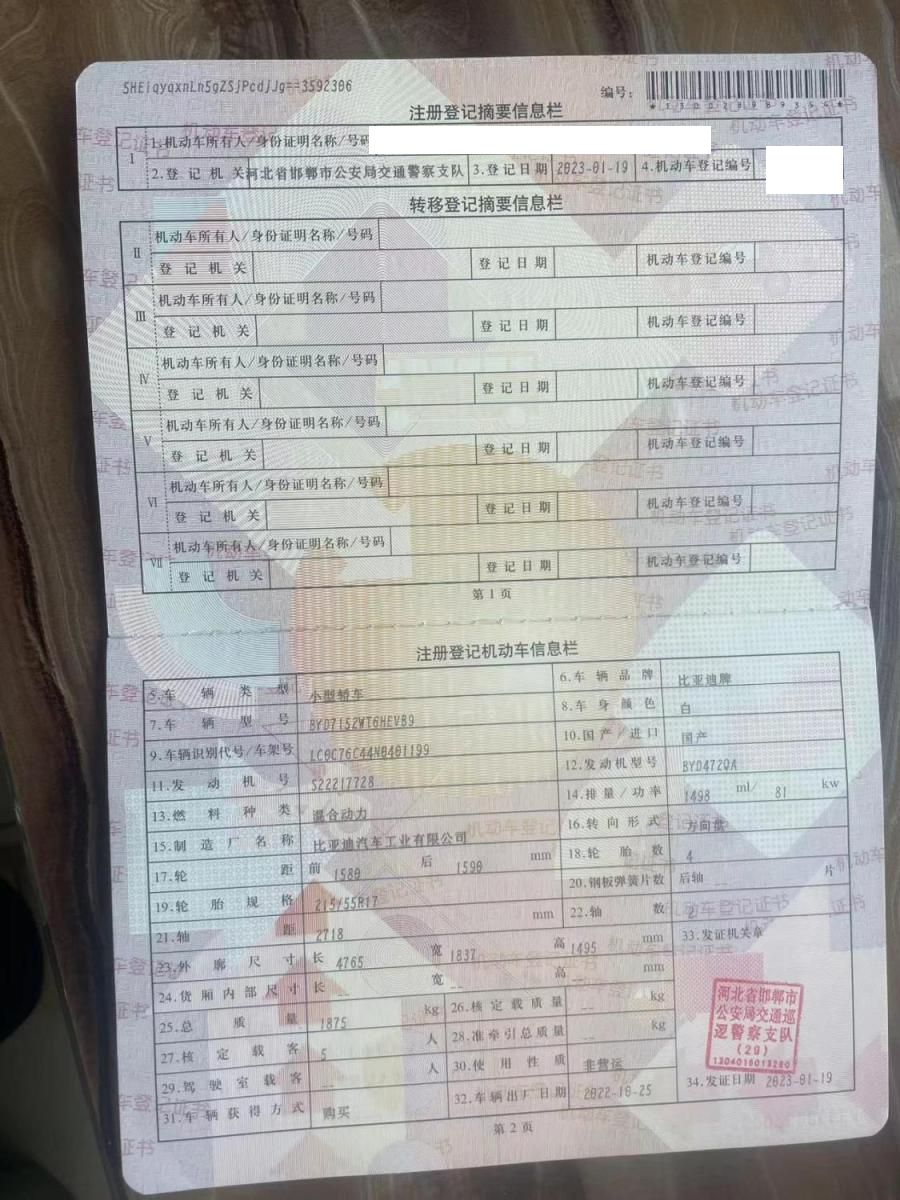 5HEiqyqxnLn5gZSjPcdjJg==3592306
编号：
*130028989356*
注册登记摘要信息栏
I
1.机动车所有人/身份证明名称/号码
2.登记机关 河北省邯郸市公安局交通警察支队 3.登记日期 2023-01-19 4.机动车登记编号
转移登记摘要信息栏
II
机动车所有人/身份证明名称/号码
登记机关 登记日期 机动车登记编号
III
机动车所有人/身份证明名称/号码
登记机关 登记日期 机动车登记编号
IV
机动车所有人/身份证明名称/号码
登记机关 登记日期 机动车登记编号
V
机动车所有人/身份证明名称/号码
登记机关 登记日期 机动车登记编号
VI
机动车所有人/身份证明名称/号码
登记机关 登记日期 机动车登记编号
VII
机动车所有人/身份证明名称/号码
登记机关 登记日期 机动车登记编号
第1页
注册登记机动车信息栏
5.车辆类型 小型轿车 6.车辆品牌 比亚迪牌
7.车辆型号 BYD7152WT6HEVB9 8.车身颜色 白
9.车辆识别代号/车架号 LC0C76C44N0401199 10.国产/进口 国产
11.发动机号 S22217728 12.发动机型号 BYD472QA
13.燃料种类 混合动力 14.排量/功率 1498 ml/ 81 kw
15.制造厂名称 比亚迪汽车工业有限公司 16.转向形式 方向盘
17.轮距 前 1580 后 1590 mm 18.轮胎数 4
19.轮胎规格 215/55R17 20.钢板弹簧片数 后轴 -- 片
21.轴距 2718 mm 22.轴数 2
23.外廓尺寸 长 4765 宽 1837 高 1495 mm 33.发证机关章
24.货厢内部尺寸 长 -- 宽 -- 高 -- mm
25.总质量 1875 kg 26.核定载质量 -- kg
27.核定载客 5 人 28.准牵引总质量 -- kg
29.驾驶室载客 -- 人 30.使用性质 非营运
31.车辆获得方式 购买 32.车辆出厂日期 2022-10-25 34.发证日期 2023-01-19
河北省邯郸市
公安局交通巡
逻警察支队
(29)
第2页